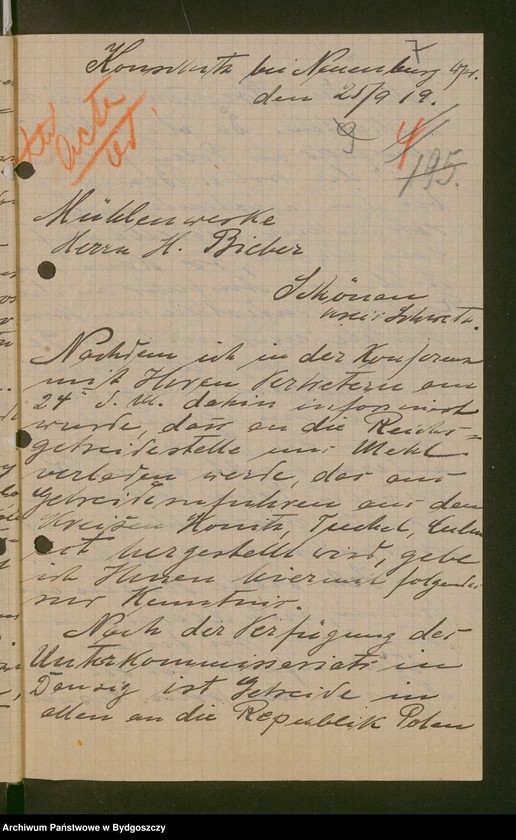 7
Konschütz bei Neuenburg Wpr.
den 25/9 19.
9 4
195.
Acta
Mühlenwerke
Herrn H. Bieber
Schönau
Kreis Schwetz.
Nachdem ich in der Konferenz
mit Ihren Vertretern am
24. d. M. dahin informiert
wurde, dass an die Reichs=
getreidestelle nur Mehl
verladen werde, das aus
Getreidezufuhren aus den
Kreisen Konitz, Tuchel, Culm
ect hergestellt wird, gebe
ich Ihnen hiermit folgendes
zur Kenntnis.
Nach der Verfügung des
Unterkommissariats in
Danzig ist Getreide in
allen an die Republik Polen
Archiwum Państwowe w Bydgoszczy